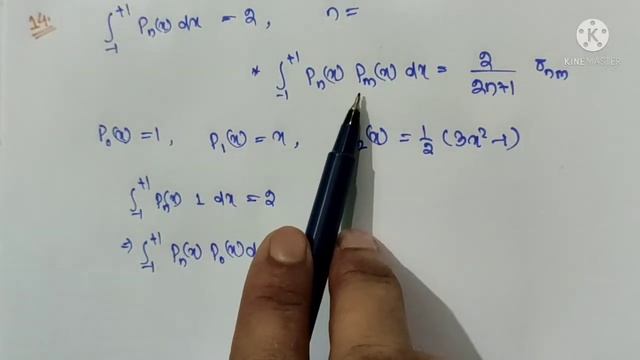 14. ∫₋₁⁺¹ Pₙ(x) dx = 2, n =
* ∫₋₁⁺¹ Pₙ(x) Pₘ(x) dx = 2/(2n+1) δₙₘ
P₀(x) = 1, P₁(x) = x, ₂(x) = 1/2 (3x² - 1)
∫₋₁⁺¹ Pₙ(x) 1 dx = 2
⇒ ∫₋₁⁺¹ Pₙ(x) P₀(x) d
KINEMASTER